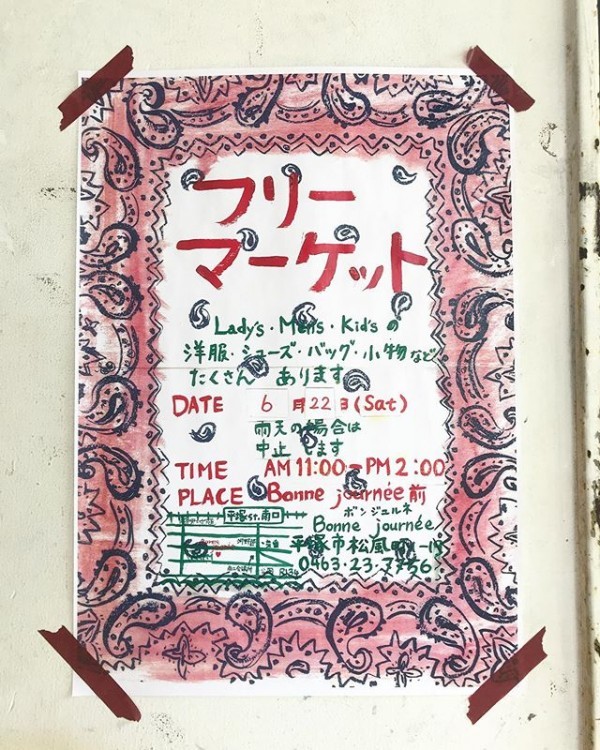 フリー
マーケット
Lady's・Men's・Kid'sの
洋服・シューズ・バッグ・小物など
たくさん あります
DATE 6月22日(Sat)
雨天の場合は
中止します
TIME AM11:00-PM2:00
PLACE Bonne journée前
ボンジュルネ
Bonne journée
平塚市松風町
0463・23・7756
平塚st.南口
R134